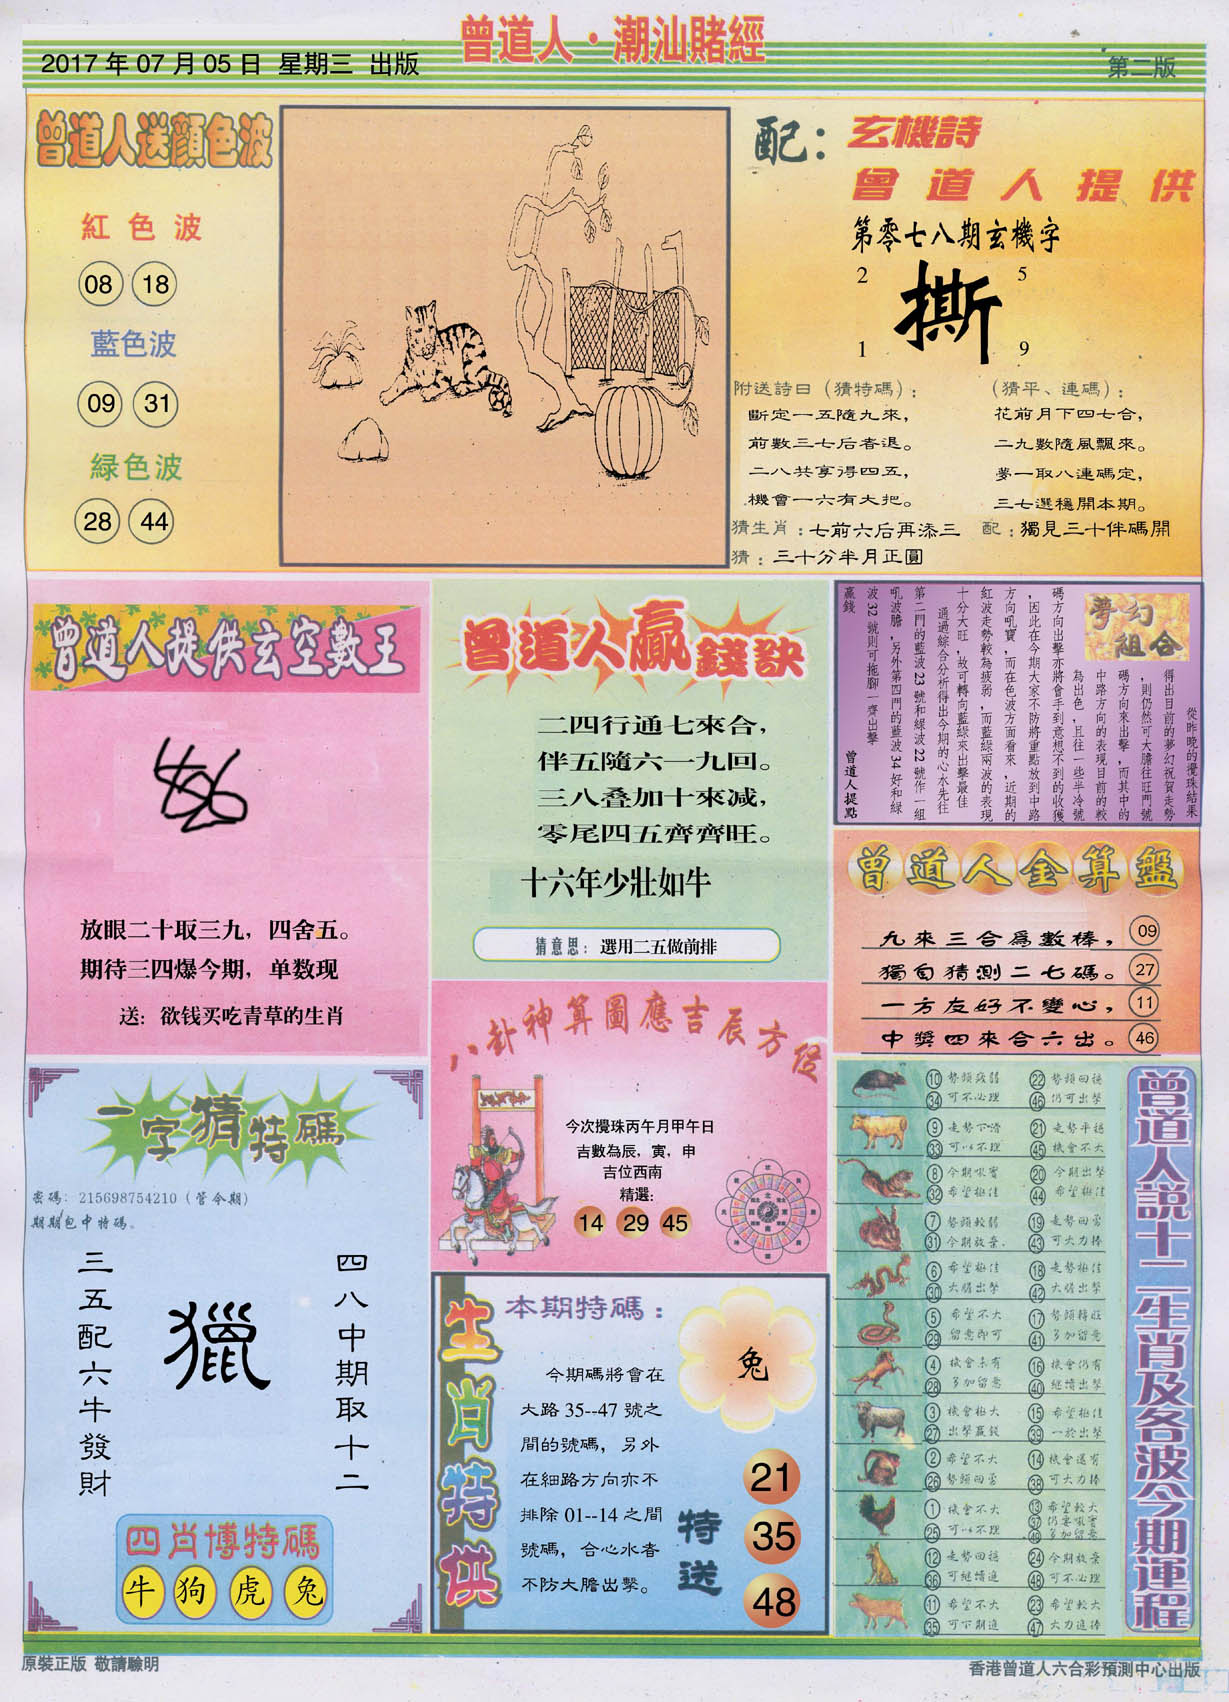 曾道人·潮汕賭經
2017年07月05日 星期三 出版
第二版
曾道人送顏色波
紅色波
08 18
藍色波
09 31
緑色波
28 44
配：玄機詩
曾道人提供
第零七八期玄機字
2 5
撕
1 9
附送詩曰（猜特碼）：
斷定一五隨九來，
前數三七后者退。
二八共享得四五，
機會一六有大把。
（猜平、連碼）：
花前月下四七合，
二九數隨風飄來。
夢一取八連碼定，
三七選穩開本期。
猜生肖：七前六后再添三
配：獨見三十伴碼開
猜：三十分半月正圓
曾道人提供玄空數王
放眼二十取三九，四舍五。
期待三四爆今期，单数现
送：欲钱买吃青草的生肖
曾道人贏錢訣
二四行通七來合，
伴五隨六一九回。
三八叠加十來減，
零尾四五齊齊旺。
十六年少壯如牛
猜意思：選用二五做前排
夢幻組合
從昨晚的攪珠結果
得出目前的夢幻祝賀走勢
，則仍然可大膽往旺門號
碼方向來出擊，而其中的
中路方向的表現目前的較
為出色，且往一些半冷號
碼方向出擊亦將會手到意想不到的收獲
，因此在今期大家不防將重點放到中路
方向吼寶，而在色波方面看來，近期的
紅波走勢較為疲弱，而藍綠兩波的表現
十分大旺，故可轉向藍綠來出擊最佳
通過綜合分析得出今期的心水先往
第二門的藍波23號和綠波22號作一組
吼波膽，另外第四門的藍波34好和綠
波32號則可拖腳一齊出擊
贏錢
曾道人提點
曾道人金算盤
九來三合為數棒， 09
獨自猜測二七碼。 27
一方友好不變心， 11
中獎四來合六出。 46
八卦神算圖應吉辰方位
今次攪珠丙午月甲午日
吉數為辰，寅，申
吉位西南
精選:
14 29 45
一字猜特碼
密碼：215698754210（管今期）
期期包中特碼。
四八中期取十二
獵
三五配六牛發財
四肖博特碼
牛 狗 虎 兔
生肖特供
本期特碼：
兔
今期碼將會在
大路35--47號之
間的號碼，另外
在細路方向亦不
排除01--14之間
號碼，合心水者
不防大膽出擊。
特送
21
35
48
曾道人説十二生肖及各波今期運程
10 勢頭疲弱 22 勢頭回穩
34 可不必理 46 仍可出擊
9 走勢下滑 21 走勢平穩
33 可以不理 45 機會不大
8 今期吼寶 20 今期出擊
32 希望極佳 44 希望極佳
7 勢頭較弱 19 走勢回勇
31 今期放棄. 43 可大力捧
6 希望極佳 18 走勢極佳
30 大膽出擊 42 大膽出擊
5 希望不大 17 勢頭轉旺
29 留意即可 41 多加留意
4 機會未有 16 機會仍有
28 多加留意 40 繼續出擊
3 機會極大 15 希望極佳
27 出擊贏錢 39 一於出擊
2 希望不大 14 機會還有
26 勢頭回勇 38 可大力捧
1 機會不大 13 希望較大
37 仍要吼實
25 可以不理 49 多加留意
12 走勢回穩 24 今期放棄
36 可繼續追 48 可不必理
11 希望不大 23 希望較大
35 可下期追 47 大力追捧
原裝正版 敬請驗明
香港曾道人六合彩預測中心出版